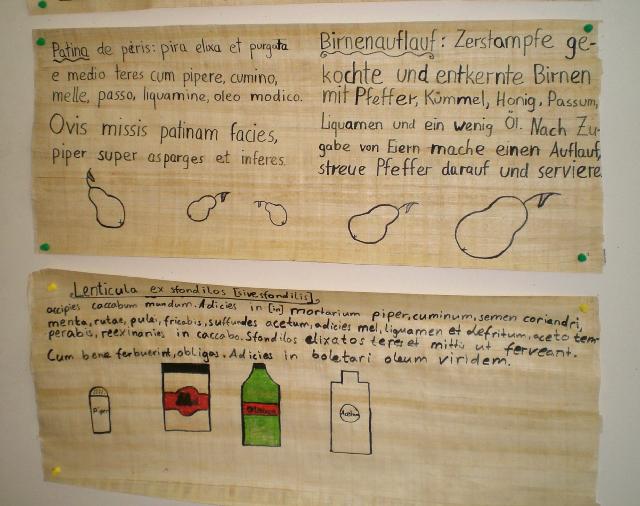 Patina de piris: pira elixa et purgata
e medio teres cum pipere, cumino,
melle, passo, liquamine, oleo modico.
Ovis missis patinam facies,
piper super asparges et inferes.
Birnenauflauf: Zerstampfe ge-
kochte und entkernte Birnen
mit Pfeffer, Kümmel, Honig, Passum,
Liquamen und ein wenig Öl. Nach Zu-
gabe von Eiern mache einen Auflauf,
streue Pfeffer darauf und serviere.
Lenticula ex sfondilos [sive sfondilis]
accipies caccabum mundum. Adicies in [in] mortarium piper, cuminum, semen coriandri,
menta, rutae, pulei, fricabis, suffundes acetum, adicies mel, liquamen et defritum, aceto tem
perabis, reexinanies in caccabo. Sfondilos elixatos teres et mittis ut ferveant.
Cum bene ferbuerint, obligas. Adicies in boletari oleum viridem.
Piper
Acetum